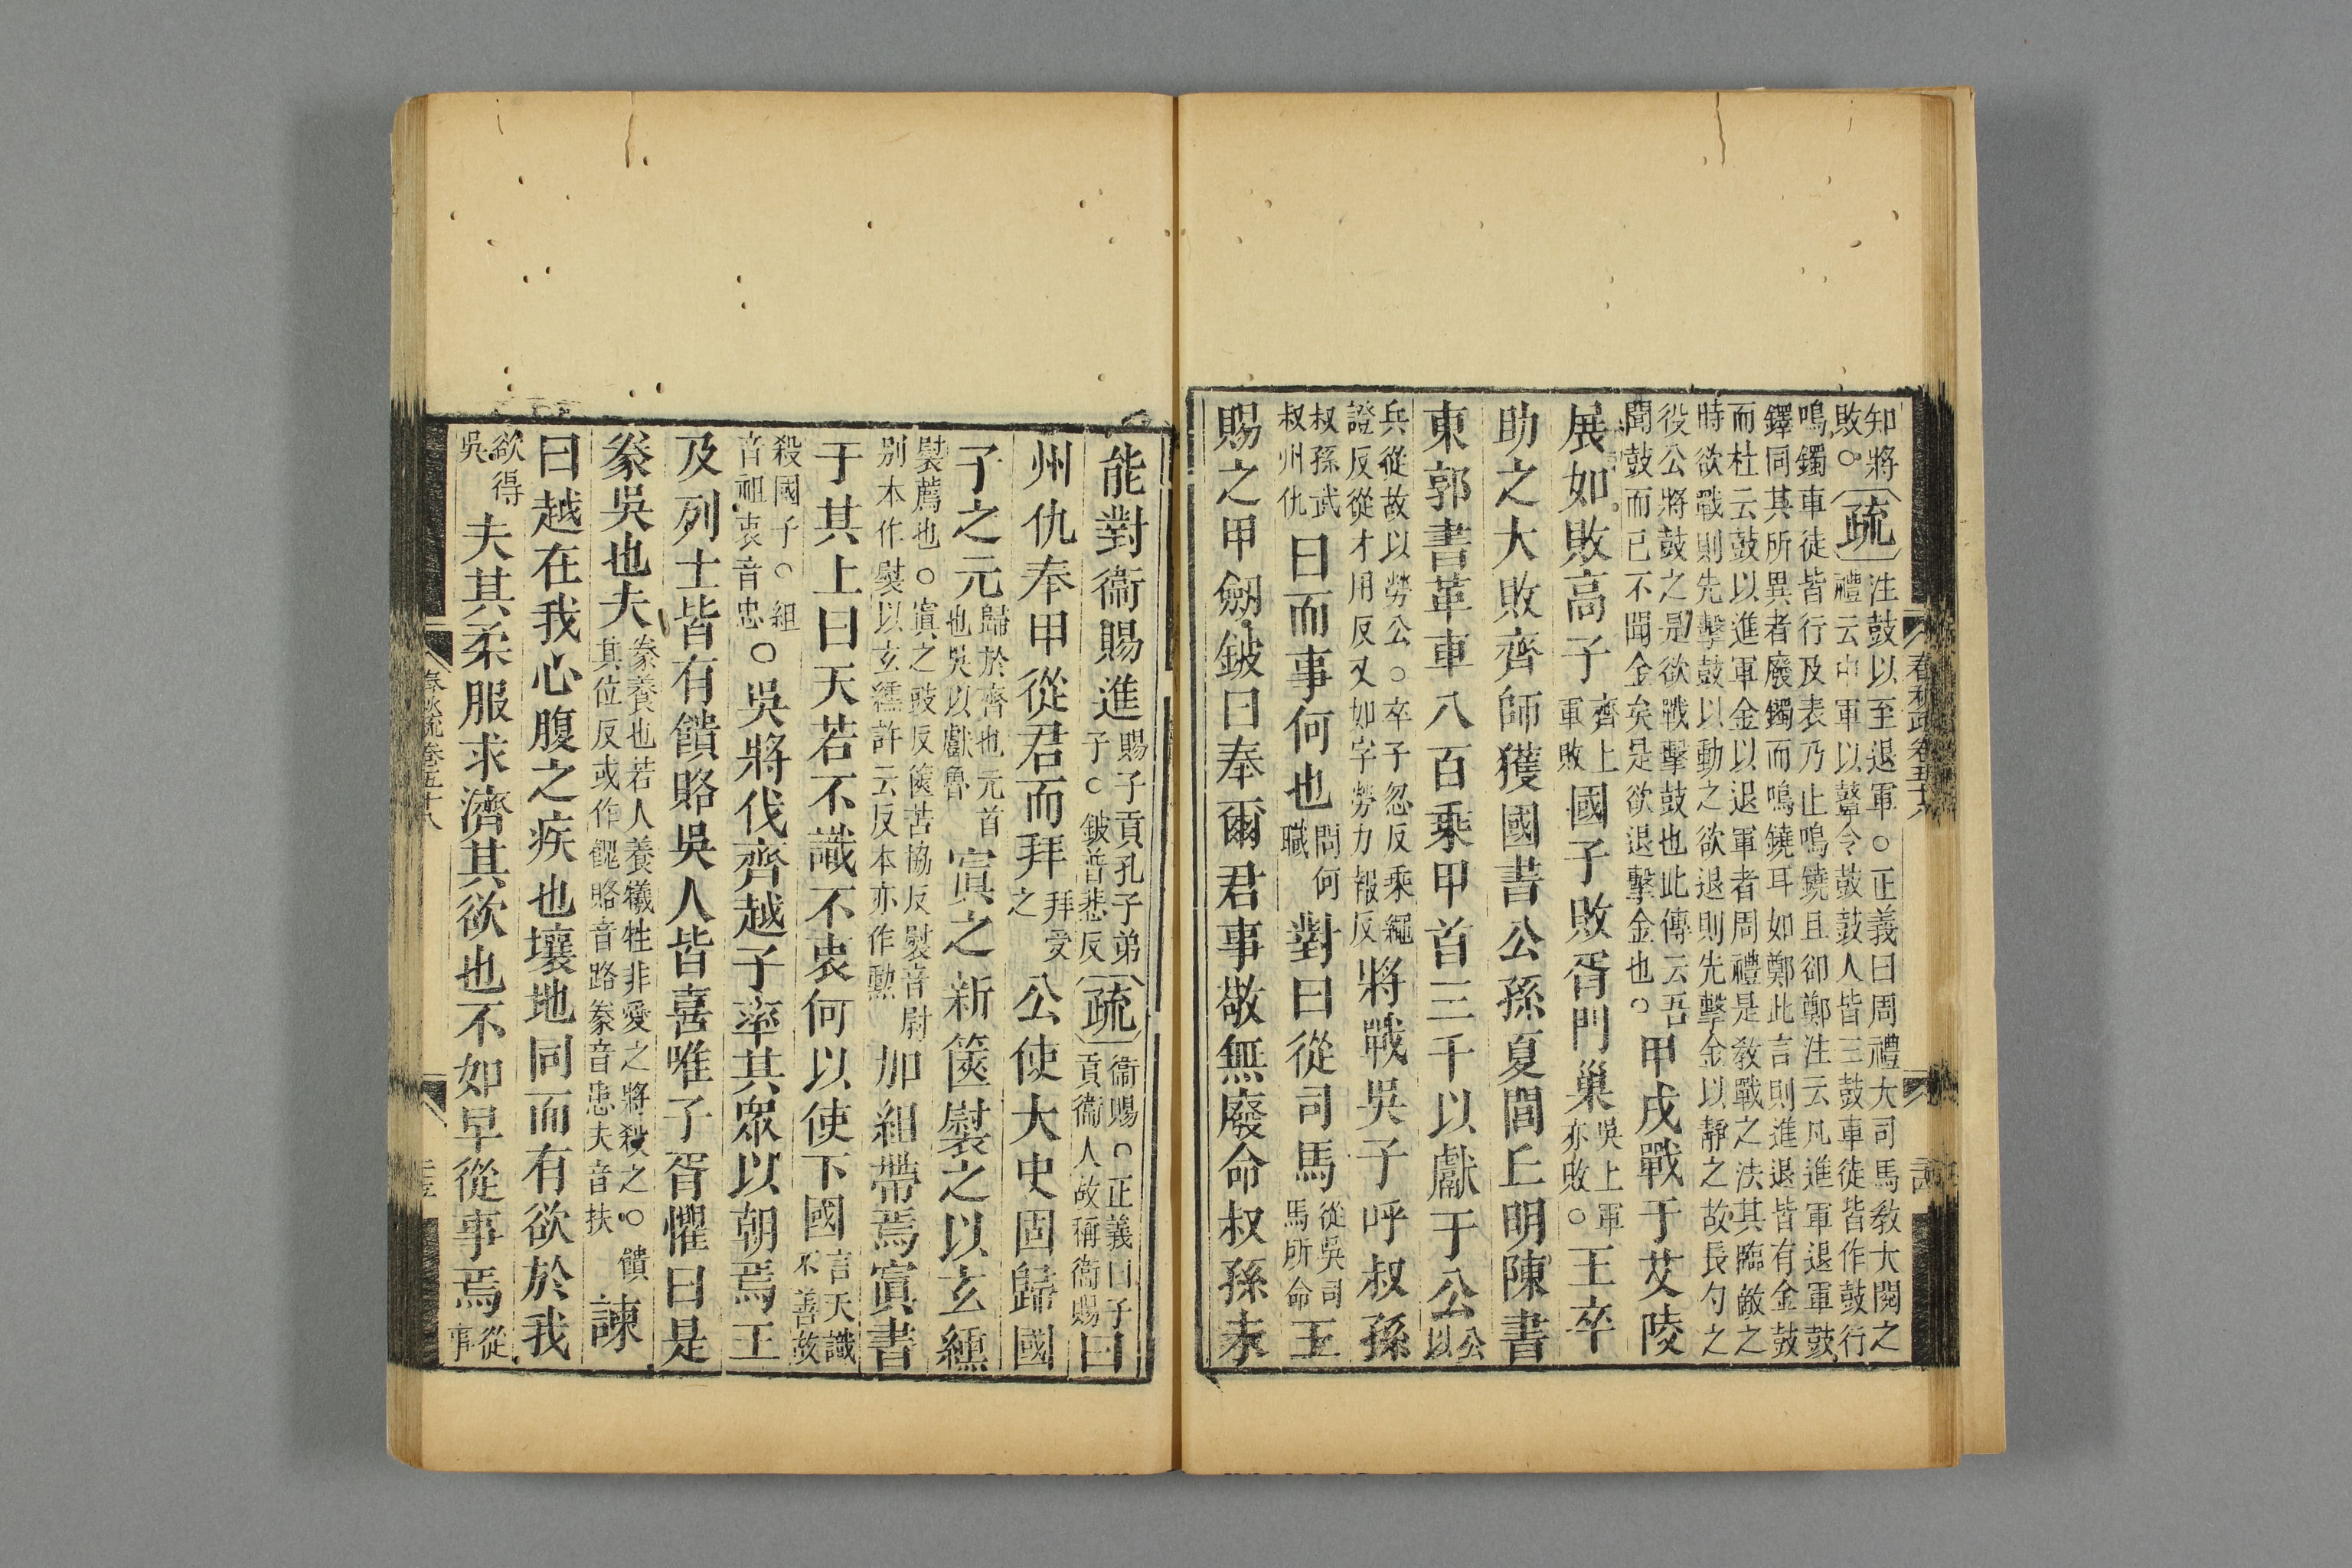 知將敗。疏注鼓以至退軍○正義曰周禮大司馬教大閱之禮云中軍以鼙令鼓鼓人皆三鼓車徒皆作鼓行
鳴鐲車徒皆行及表乃止鳴鐃且卻鄭注云凡進軍退軍鼓鐸同其所異者廢鐲而鳴鐃耳如鄭此言則進退皆有金鼓
而杜云鼓以進軍金以退軍者周禮是教戰之法其臨敵之時欲戰則先擊鼓以動之欲退則先擊金以靜之故長勺之
役公將鼓之是欲戰擊鼓也此傳云吾聞鼓而已不聞金矣是欲退擊金也。甲戌戰于艾陵
展如敗高子齊上軍敗國子敗胥門巢吳上軍亦敗。王卒
助之大敗齊師獲國書公孫夏閭丘明陳書
東郭書革車八百乘甲首三千以獻于公公以
兵從故以勞公。卒子忽反乘繩證反從才用反又如字勞力報反將戰吳子呼叔孫
叔孫武叔州仇曰而事何也問何職對曰從司馬從吳司馬所命王
賜之甲劒鈹曰奉爾君事敬無廢命叔孫未
春秋疏卷五十八
能對衞賜進賜子貢孔子弟子○鈹普悲反疏衞賜○正義曰子貢衞人故稱衞賜曰
州仇奉甲從君而拜拜受之公使大史固歸國
子之元歸於齊也元首也吳以獻魯寘之新篋褽之以玄纁
褽薦也○寘之豉反篋苦協反褽音尉别本作熨以玄纁許云反本亦作勳加組帶焉寘書
于其上曰天若不識不衷何以使下國言天識不善故
殺國子○組音祖衷音忠○吳將伐齊越子率其眾以朝焉王
及列士皆有饋賂吳人皆喜唯子胥懼曰是
豢吳也夫豢養也若人養犧牲非愛之將殺之○饋其位反或作餽賂音路豢音患夫音扶諫
曰越在我心腹之疾也壤地同而有欲於我
欲得吳夫其柔服求濟其欲也不如早從事焉從事
春秋疏卷五十八